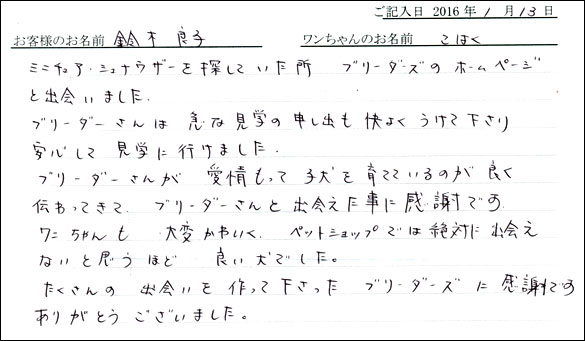 ご記入日 2016年 1月 13日
お客様のお名前 鈴木 良子 ワンちゃんのお名前 こはく
ミニチュア・シュナウザーを探していた所 ブリーダーズのホームページ
と出会いました.
ブリーダーさんは 急な見学の申し出も 快よくうけて下さり
安心して 見学に行けました.
ブリーダーさんが 愛情もって 子犬を育てているのが 良く
伝わってきて. ブリーダーさんと出会えた事に感謝です
ワンちゃんも 大変かわいく. ペットショップでは絶対に出会え
ないと思うほど 良い犬でした。
たくさんの 出会いを 作って下さった ブリーダーズに 感謝です
ありがとう ございました。